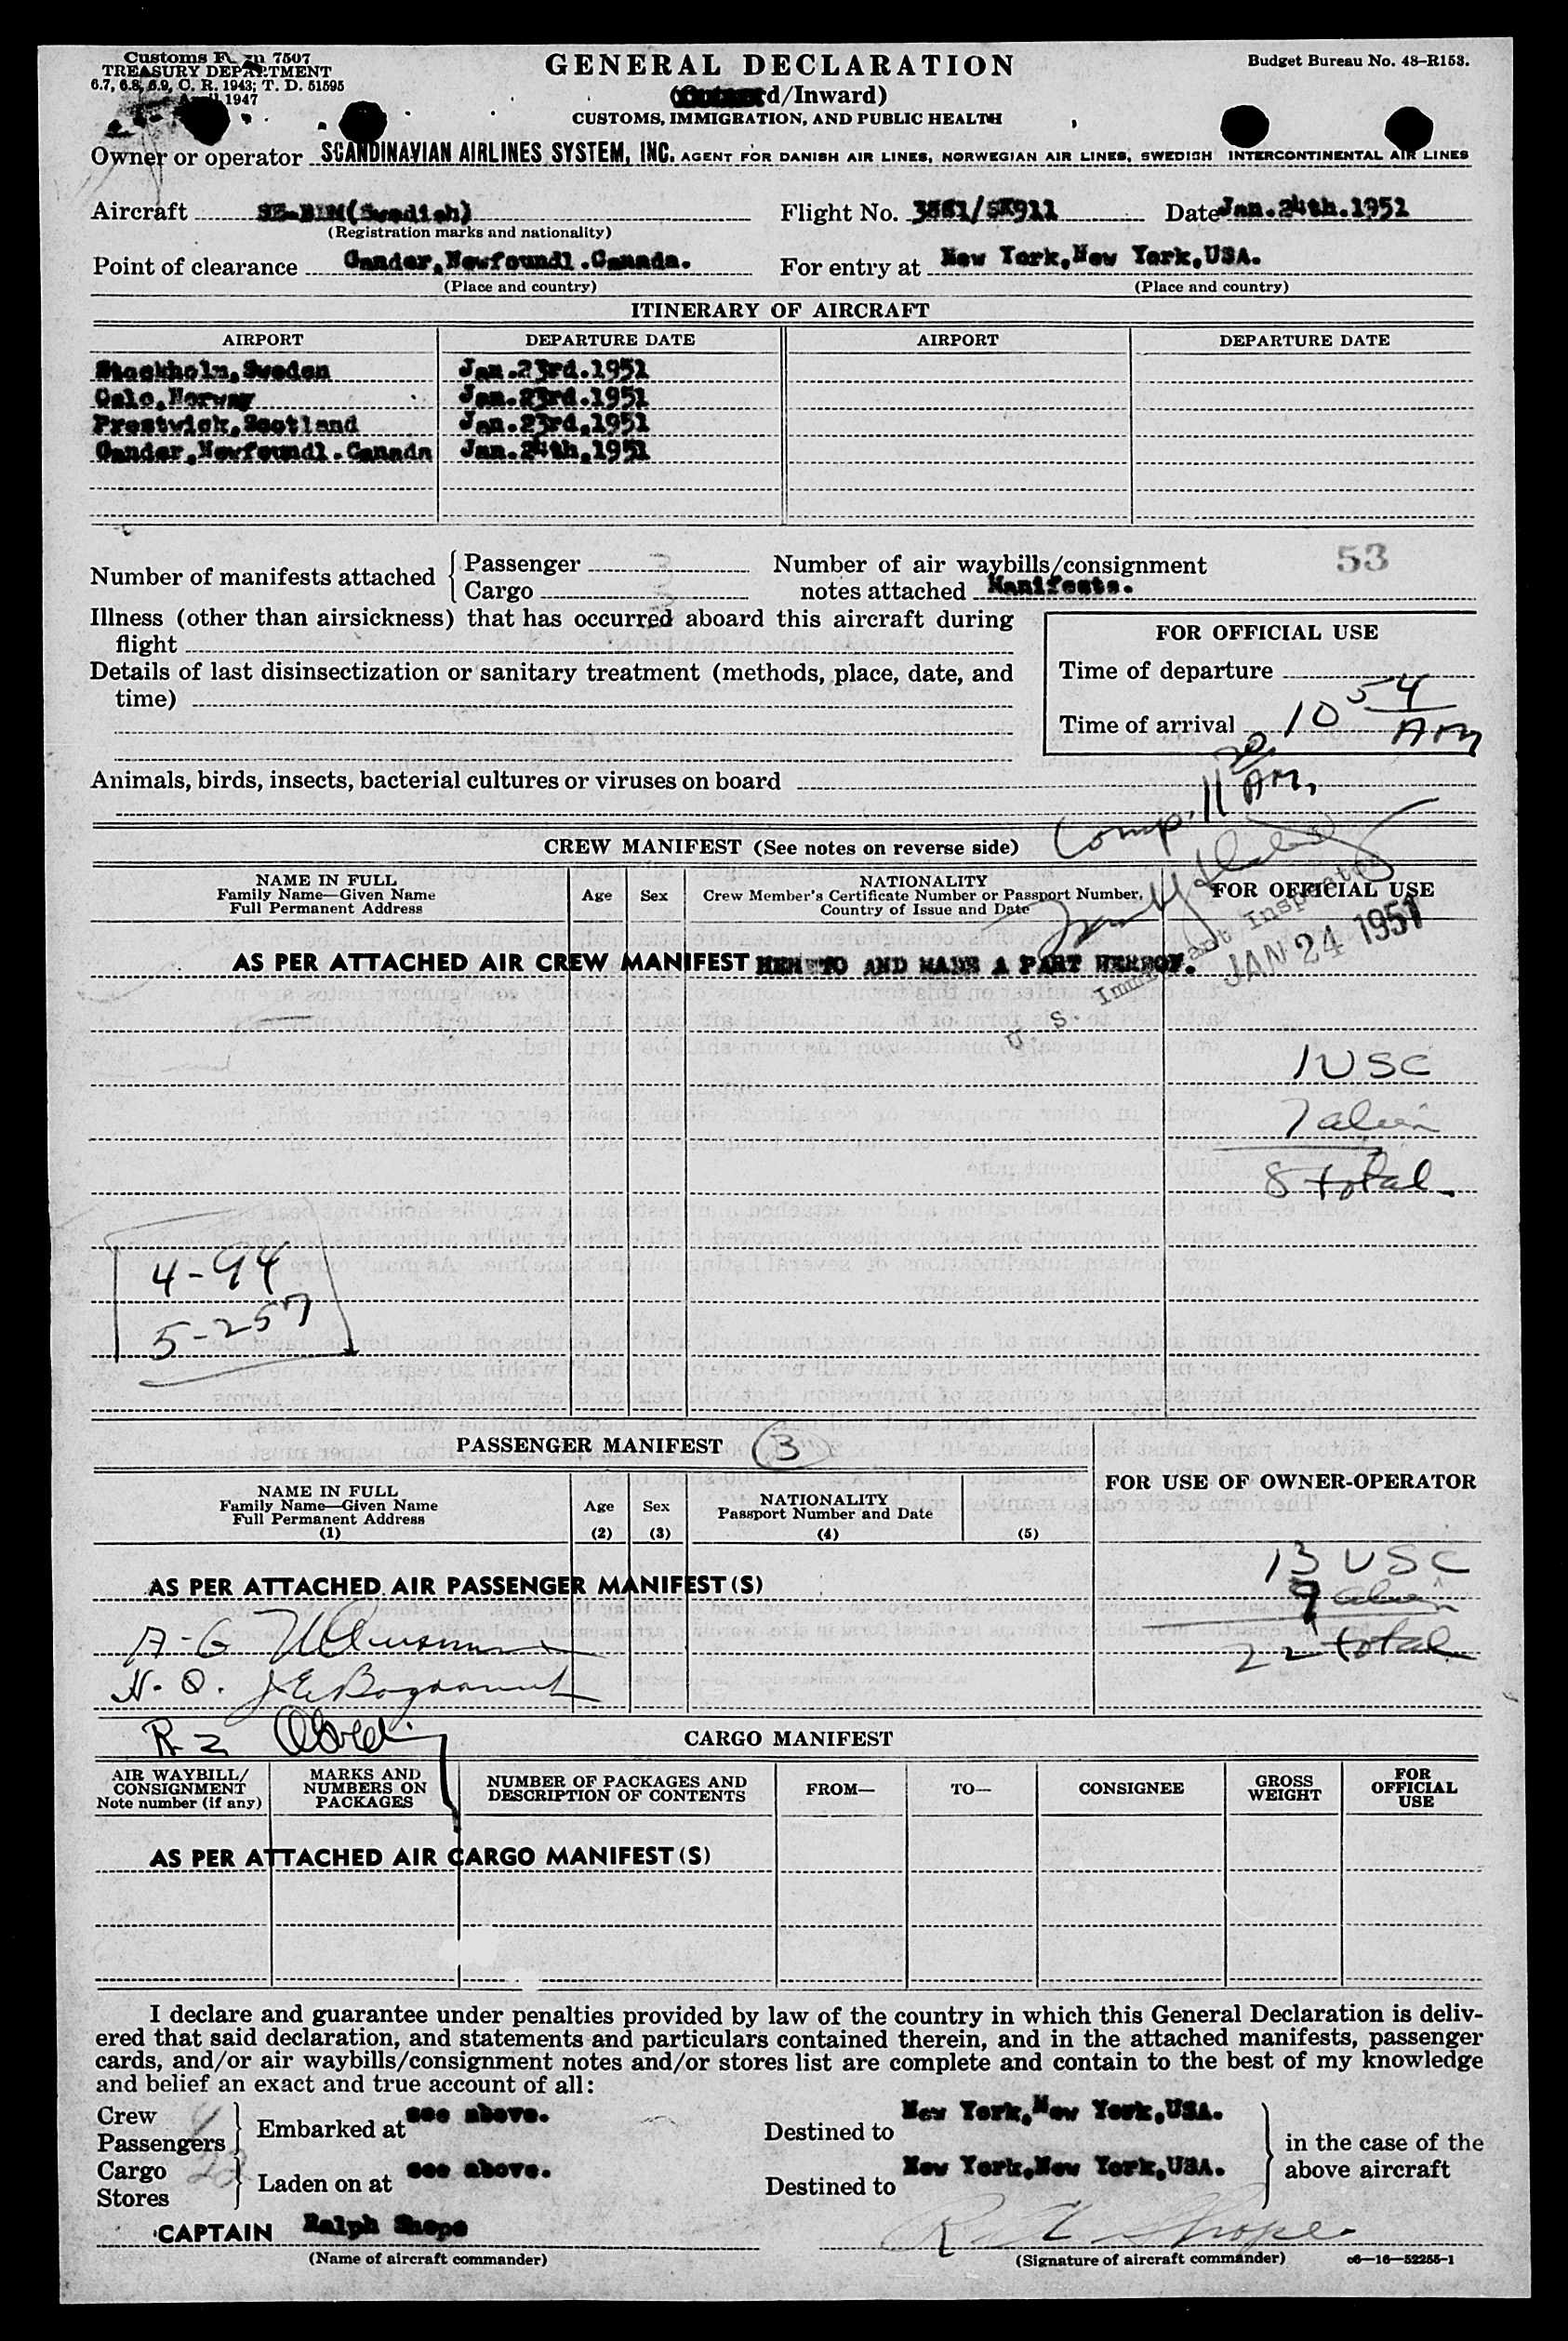 Customs Form 7507
TREASURY DEPARTMENT
6.7, 6.8, 6.9, C. R. 1943; T. D. 51595
April 1947
GENERAL DECLARATION
d/Inward)
CUSTOMS, IMMIGRATION, AND PUBLIC HEALTH
Budget Bureau No. 48–R153.
Owner or operator SCANDINAVIAN AIRLINES SYSTEM, INC. AGENT FOR DANISH AIR LINES, NORWEGIAN AIR LINES, SWEDISH INTERCONTINENTAL AIR LINES
Aircraft (Swedish) Flight No. /SK911 Date Jan.24th.1951
(Registration marks and nationality)
Point of clearance Gander,Newfoundl.Canada. For entry at New York,New York,USA.
(Place and country) (Place and country)
ITINERARY OF AIRCRAFT
AIRPORT DEPARTURE DATE AIRPORT DEPARTURE DATE
Stockholm,Sweden Jan.23rd.1951
Oslo,Norway Jan.23rd.1951
Prestwick,Scotland Jan.23rd,1951
Gander,Newfoundl.Canada Jan.24th,1951
Number of manifests attached Passenger 3 Number of air waybills/consignment 53
Cargo notes attached Manifests.
Illness (other than airsickness) that has occurred aboard this aircraft during
flight
FOR OFFICIAL USE
Details of last disinsectization or sanitary treatment (methods, place, date, and
time)
Time of departure
Time of arrival 10 54 AM
Animals, birds, insects, bacterial cultures or viruses on board
Comp. 11 20 AM.
CREW MANIFEST (See notes on reverse side)
NAME IN FULL
Family Name—Given Name
Full Permanent Address
Age Sex
NATIONALITY
Crew Member's Certificate Number or Passport Number,
Country of Issue and Date
FOR OFFICIAL USE
U. S. Immigrant Inspector
JAN 24 1951
AS PER ATTACHED AIR CREW MANIFEST HERETO AND MADE A PART HEREOF.
1 USC
7 alien
8 total
4-94
5-257
PASSENGER MANIFEST 3
FOR USE OF OWNER-OPERATOR
NAME IN FULL
Family Name—Given Name
Full Permanent Address
(1)
Age
(2)
Sex
(3)
NATIONALITY
Passport Number and Date
(4)
(5)
13 USC
9 alien
22 total
AS PER ATTACHED AIR PASSENGER MANIFEST(S)
A-G
H. O.
R-2
CARGO MANIFEST
AIR WAYBILL/
CONSIGNMENT
Note number (if any)
MARKS AND
NUMBERS ON
PACKAGES
NUMBER OF PACKAGES AND
DESCRIPTION OF CONTENTS
FROM—
TO—
CONSIGNEE
GROSS
WEIGHT
FOR
OFFICIAL
USE
AS PER ATTACHED AIR CARGO MANIFEST(S)
I declare and guarantee under penalties provided by law of the country in which this General Declaration is deliv-
ered that said declaration, and statements and particulars contained therein, and in the attached manifests, passenger
cards, and/or air waybills/consignment notes and/or stores list are complete and contain to the best of my knowledge
and belief an exact and true account of all:
Crew
Passengers
Embarked at see above. Destined to New York,New York,USA.
in the case of the
above aircraft
Cargo
Stores
Laden on at see above. Destined to New York,New York,USA.
CAPTAIN Ralph Shope
(Name of aircraft commander) (Signature of aircraft commander) c6—16—52255-1